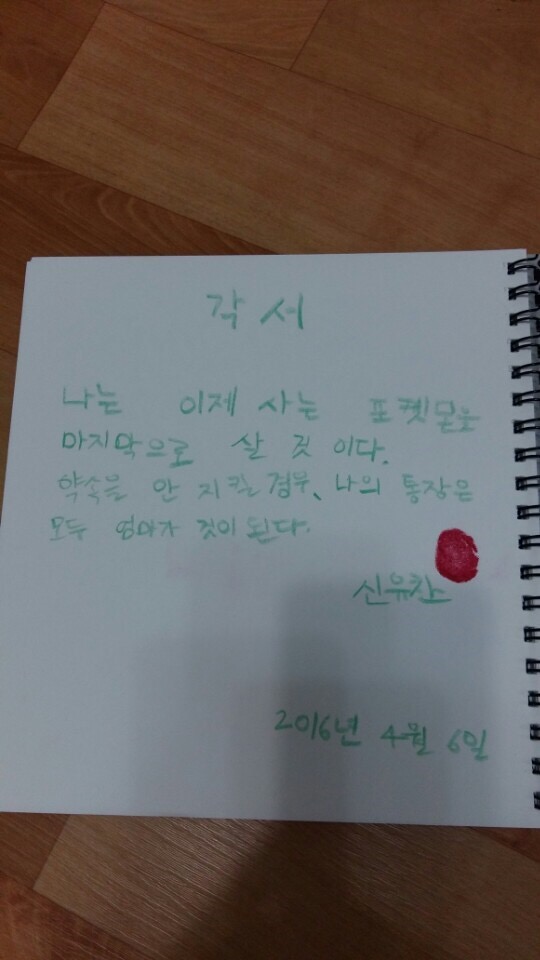 각서
나는 이제 사는 포켓몬을
마지막으로 살 것 이다.
약속을 안 지킬 경우, 나의 통장은
모두 엄마가 것이 된다.
신유찬
2016년 4월 6일